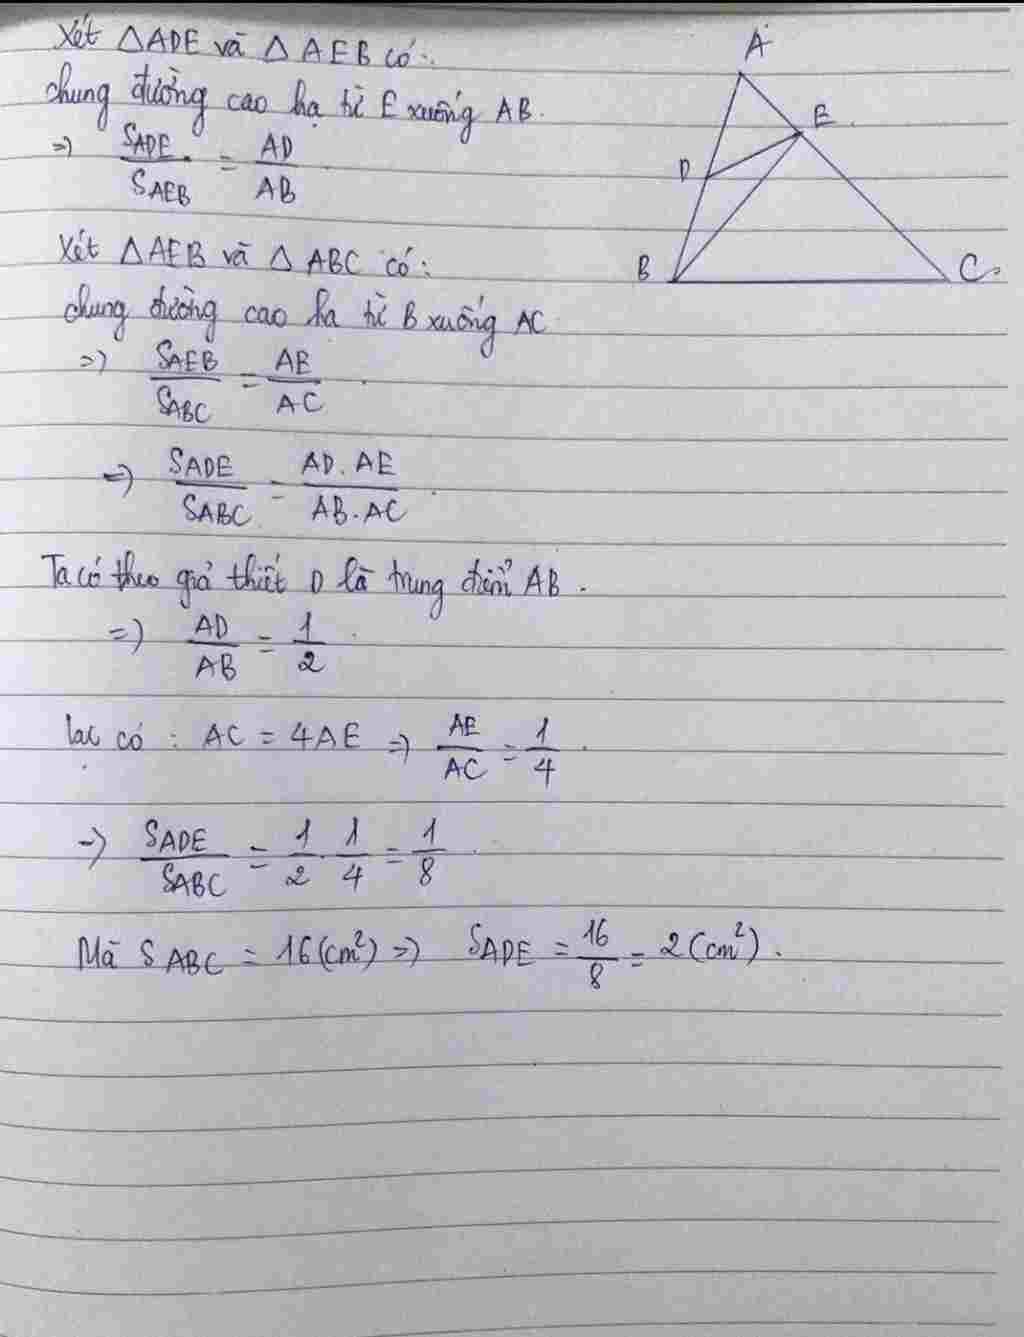 Xét △ADE và △AEB có:
chung đường cao hạ từ E xuống AB.
=> S_ADE / S_AEB = AD / AB
Xét △AEB và △ABC có:
chung đường cao hạ từ B xuống AC
=> S_AEB / S_ABC = AE / AC
=> S_ADE / S_ABC = AD.AE / AB.AC
Ta có theo giả thiết D là trung điểm AB.
=> AD / AB = 1 / 2
lại có : AC = 4AE => AE / AC = 1 / 4
=> S_ADE / S_ABC = 1 / 2 . 1 / 4 = 1 / 8
Mà S ABC = 16 (cm²) => S_ADE = 16 / 8 = 2 (cm²).
A
E
D
B
C